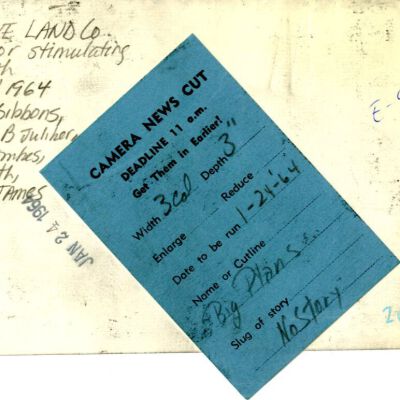 LAND Co.
or stimulating
1964
Gibbons,
B Juliber,
mbes,
th,
JAMES
JAN 24 196
CAMERA NEWS CUT
DEADLINE 11 a.m.
Get Them in Earlier!
Width 3 col Depth 3"
Enlarge Reduce
Date to be run 1-24-64
Name or Cutline
Big Plans
Slug of story No Story
E-